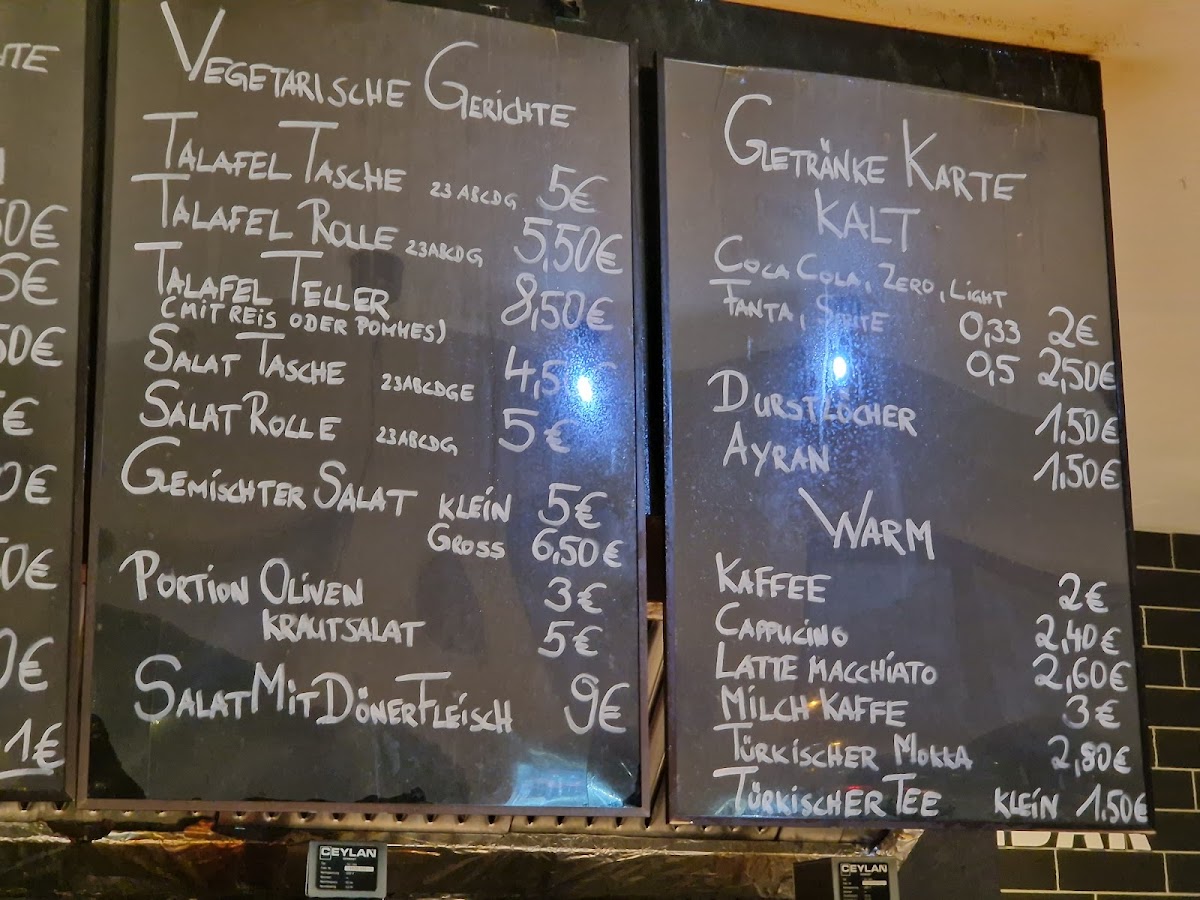 Vegetarische Gerichte
Talafel Tasche 23 ABCDG 5€
Talafel Rolle 23ABCDG 5,50€
Talafel Teller 8,50€
(mit Reis oder Pommes)
Salat Tasche 23ABCDGE
Salat Rolle 23ABCDG 5€
Gemischter Salat klein 5€
Gross 6,50€
Portion Oliven 3€
Krautsalat 5€
Salat Mit DönerFleisch 9€
Getränke Karte
KALT
Coca Cola, Zero, Light
Fanta, Sprite 0,33 2€
0,5 2,50€
Durstlöcher 1,50€
Ayran 1,50€
Warm
Kaffee 2€
Cappucino 2,40€
Latte macchiato 2,60€
Milch Kaffe 3€
Türkischer Mokka 2,80€
Türkischer Tee klein 1,50€
1€
CEYLAN
CEYLAN